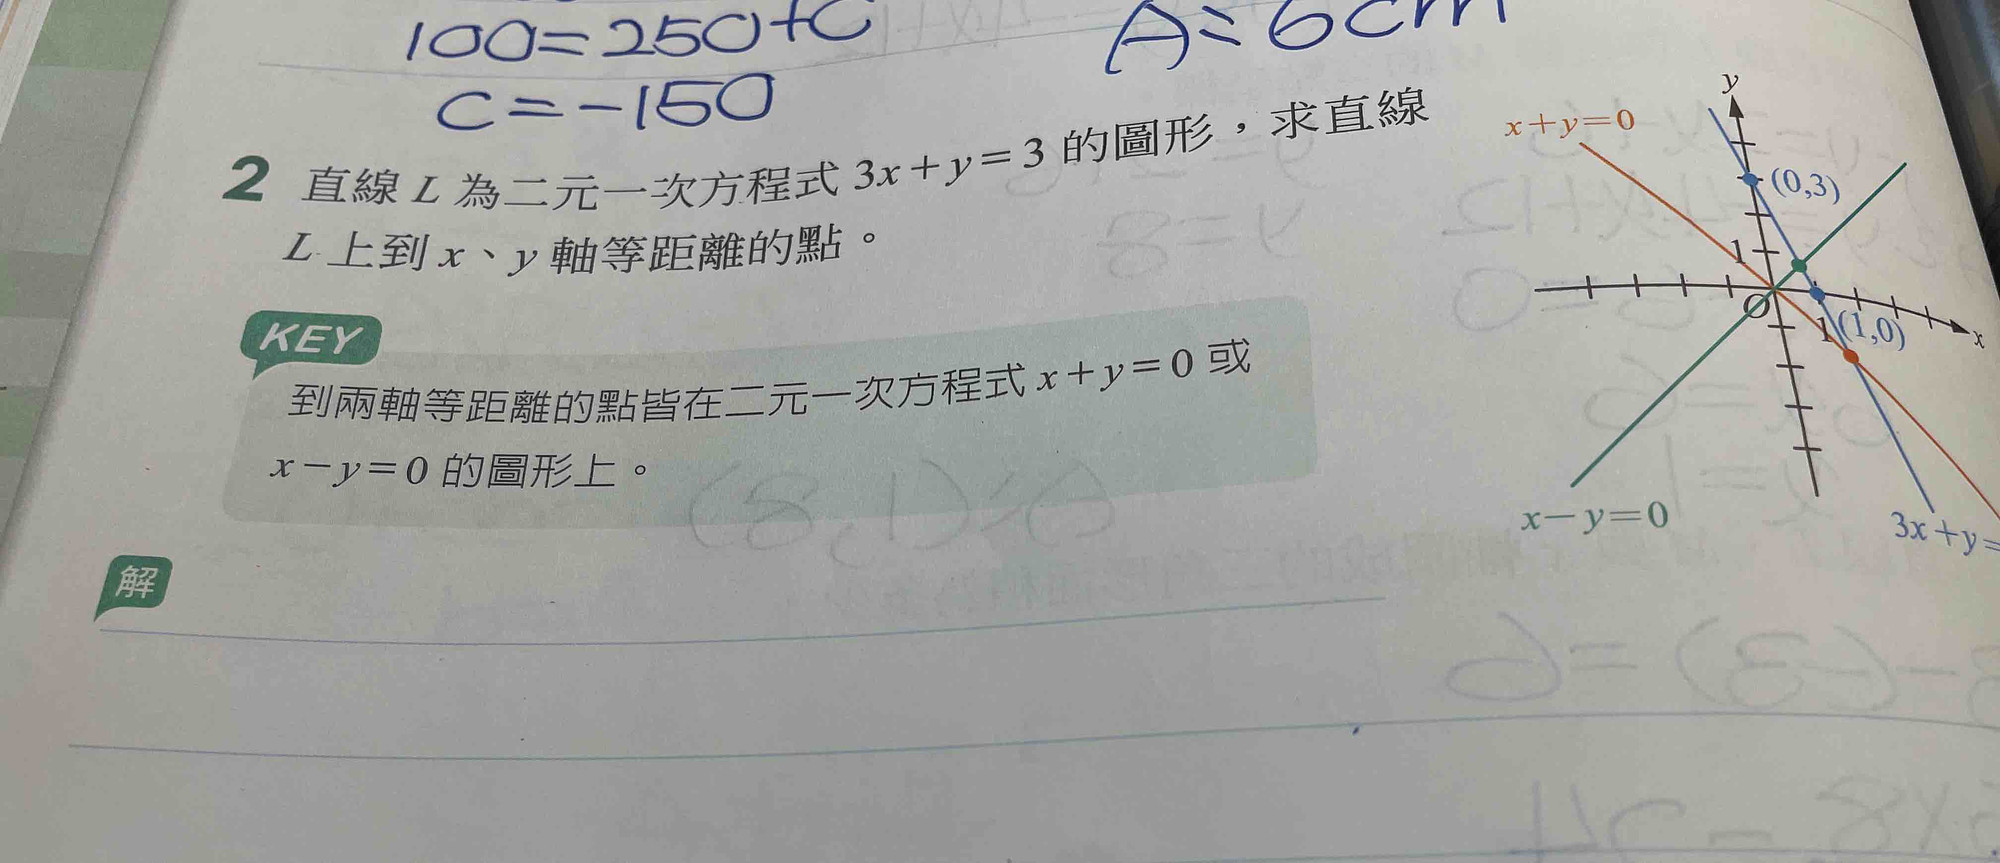 100=250+C
A=6cm
C=-150
2 直線 L 為二元一次方程式 3x+y=3 的圖形，求直線
L 上到 x、y 軸等距離的點。
KEY
到兩軸等距離的點皆在二元一次方程式 x+y=0 或
x-y=0 的圖形上。
解
y
x+y=0
(0,3)
1
O
1
(1,0)
x
x-y=0
3x+y=